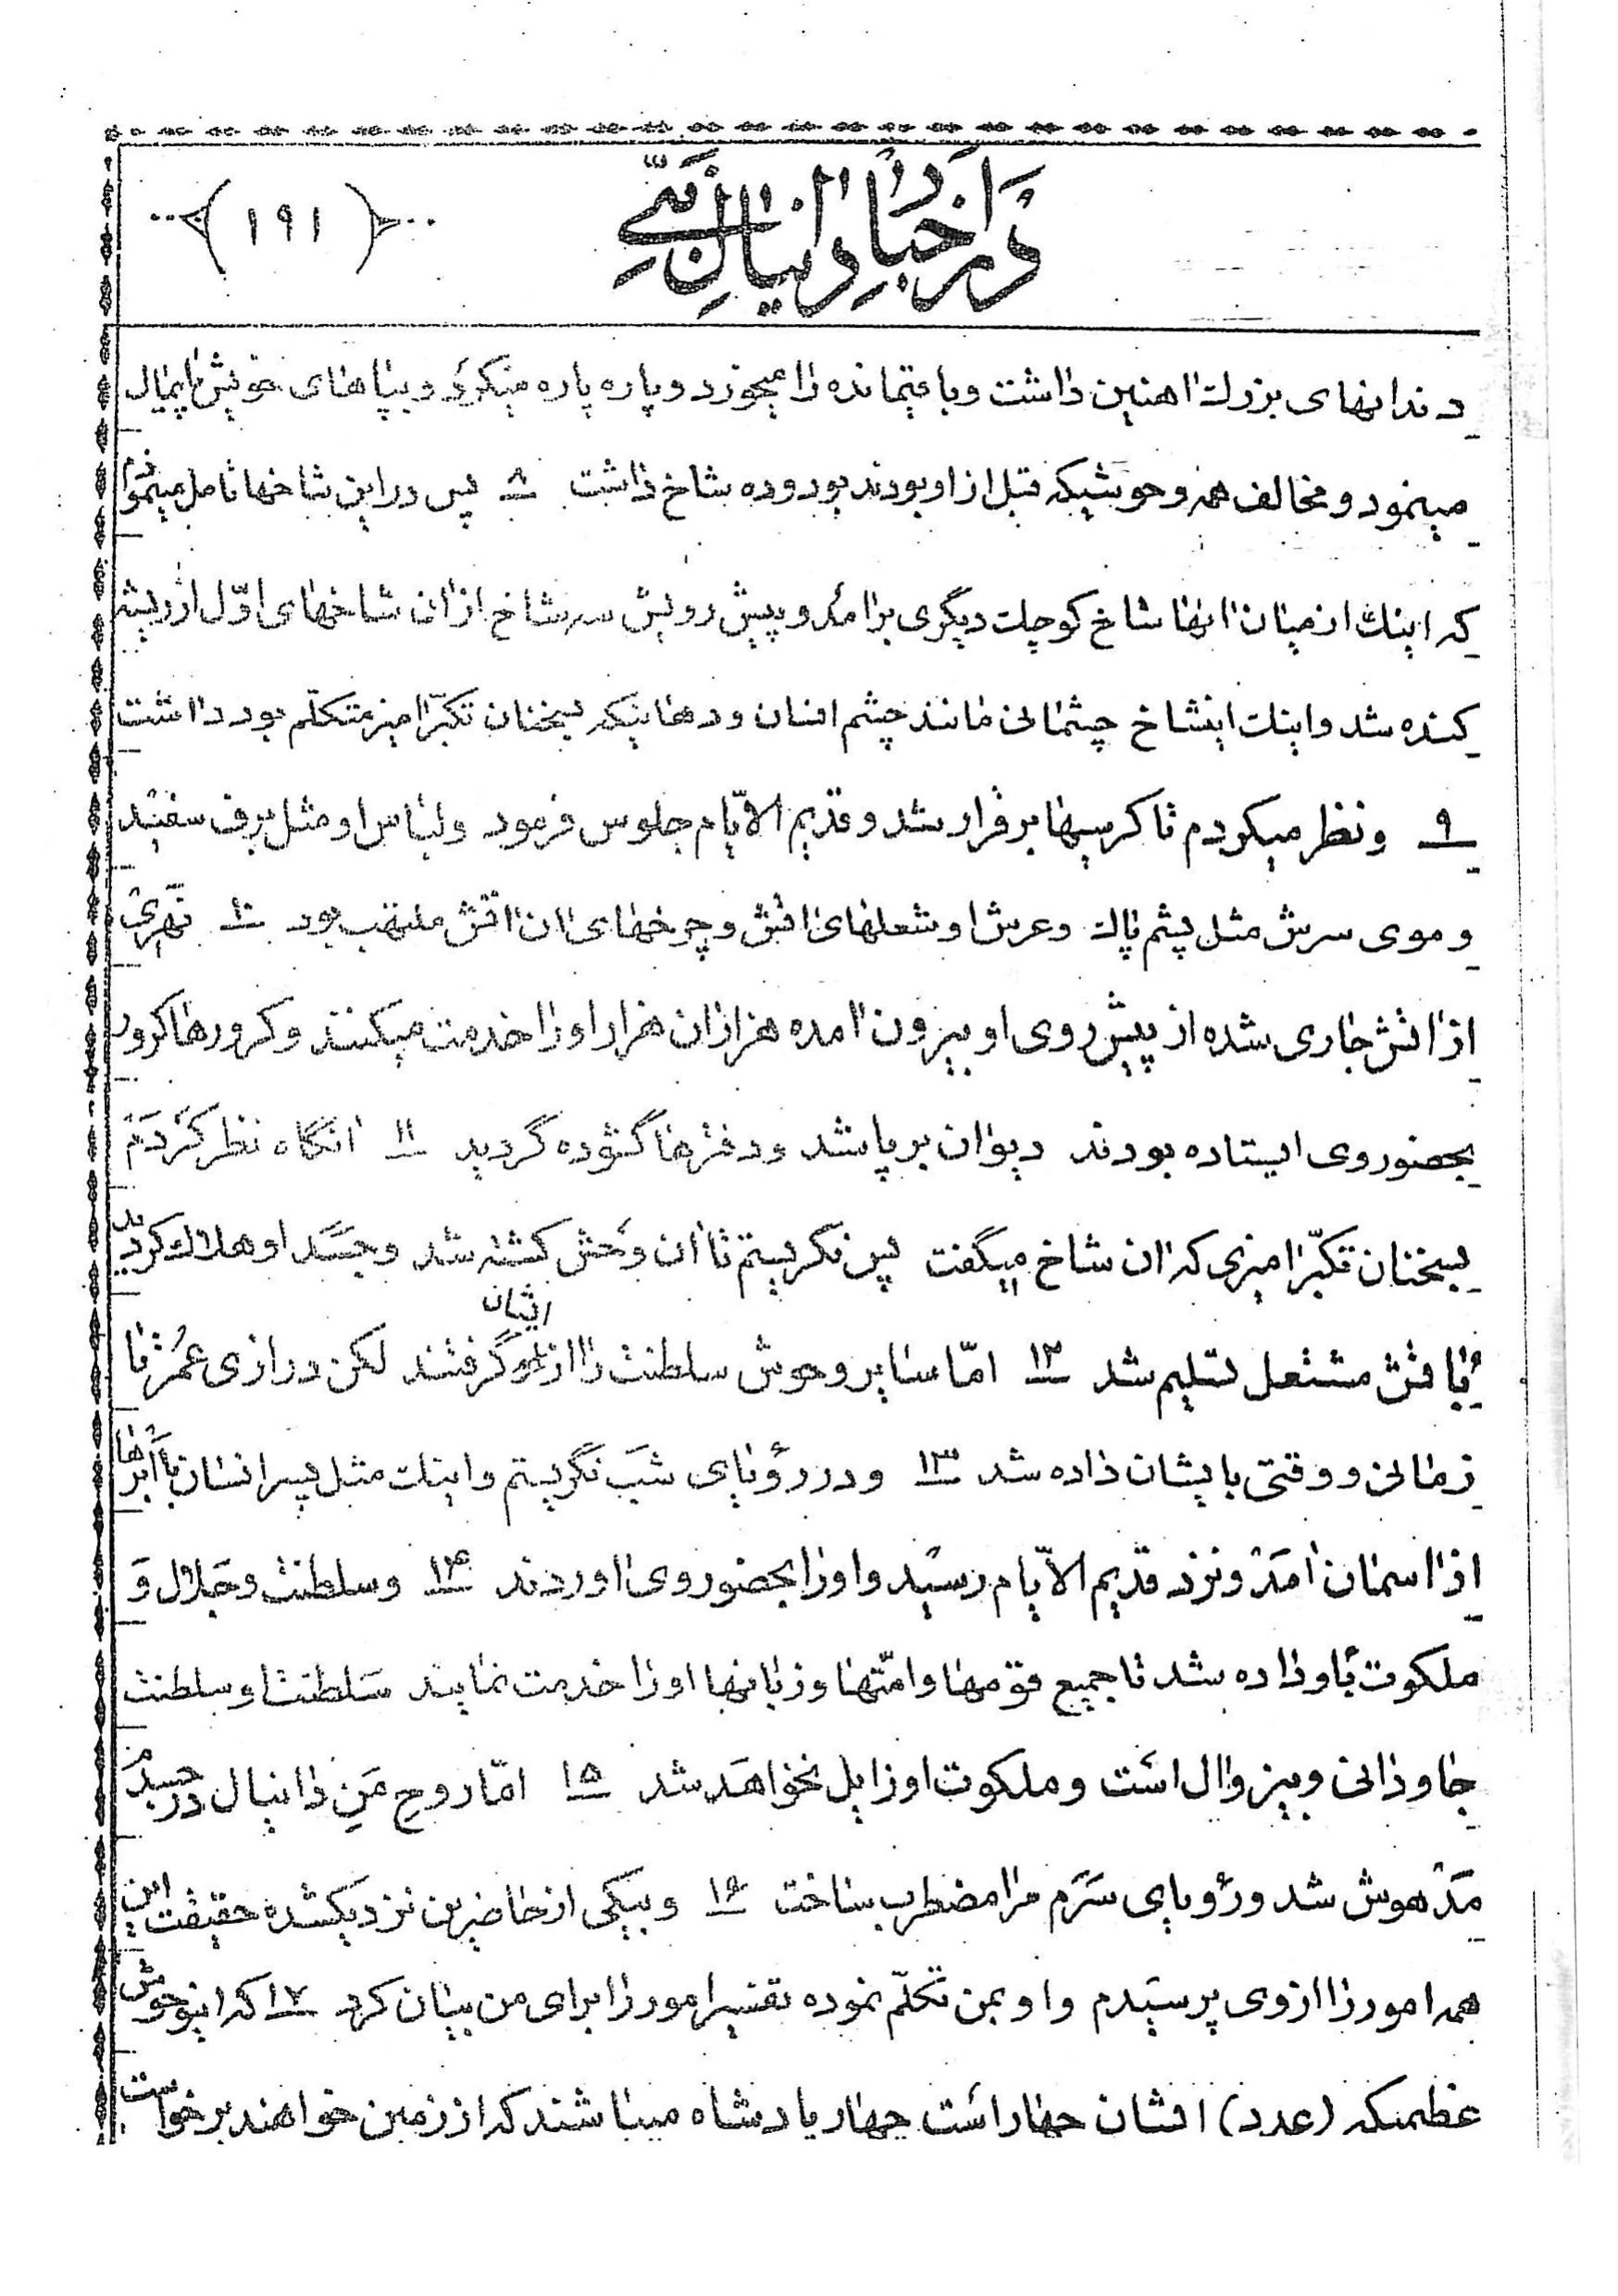 در اخبار دانیال نبی
(۱۹۱)
دندانهای بزرك اهنین داشت و باقیمانده را میخورد و پاره پاره میکرد و بپاهای خویش پایمال
مینمود و مخالف همه وحوشیکه قبل از او بودند بود و ده شاخ داشت ۸ پس در این شاخها تامل مینمودم
که اینك از میان انها شاخ کوچك دیگری برامد و پیش رویش سه شاخ از ان شاخهای اوّل از ریشه
کنده شد و اینك اینشاخ چشمانی مانند چشم انسان و دهانیکه بسخنان تکبّر امیز متکلّم بود داشت
۹ و نظر میکردم تا کرسیها برقرار شد و قدیم الایّام جلوس فرمود و لباس او مثل برف سفید
و موی سرش مثل پشم پاك و عرش او شعلهای اتش و چرخهای ان اتش ملتهب بود ۱۰ نهری
از اتش جاری شده از پیش روی او بیرون امده هزاران هزار او را خدمت میکنند و کرورها کرور
بحضور وی ایستاده بودند دیوان بر پا شد و دفترها گشوده گردید ۱۱ انگاه نظر کردم
بسخنان تکبّر امیزی که ان شاخ میگفت پس نگریستم تا ان وحش کشته شد و جسد او هلاك گردید
باتش مشتعل تسلیم شد ۱۲ امّا سایر وحوش سلطنت را از ایشان گرفتند لکن درازی عمر تا
زمانی و وقتی بایشان داده شد ۱۳ و در رؤیای شب نگریستم و اینك مثل پسر انسان با ابرها
از اسمان امد و نزد قدیم الایّام رسید و او را بحضور وی اوردند ۱۴ و سلطنت و جلال و
ملکوت باو داده شد تا جمیع قومها و امّتها و زبانها او را خدمت نمایند سلطنت او سلطنت
جاودانی و بیزوال است و ملکوت او زایل نخواهد شد ۱۵ امّا روح من دانیال در جسدم
مدهوش شد و رؤیای سرم مرا مضطرب ساخت ۱۶ و بیکی از حاضرین نزدیکشده حقیقت این
همه امور را از وی پرسیدم و او بمن تکلّم نموده تفسیر امور را برای من بیان کرد ۱۷ که اینوحوش
عظیمیکه (عدد) ایشان چهار است چهار پادشاه میباشند که از زمین خواهند برخواست